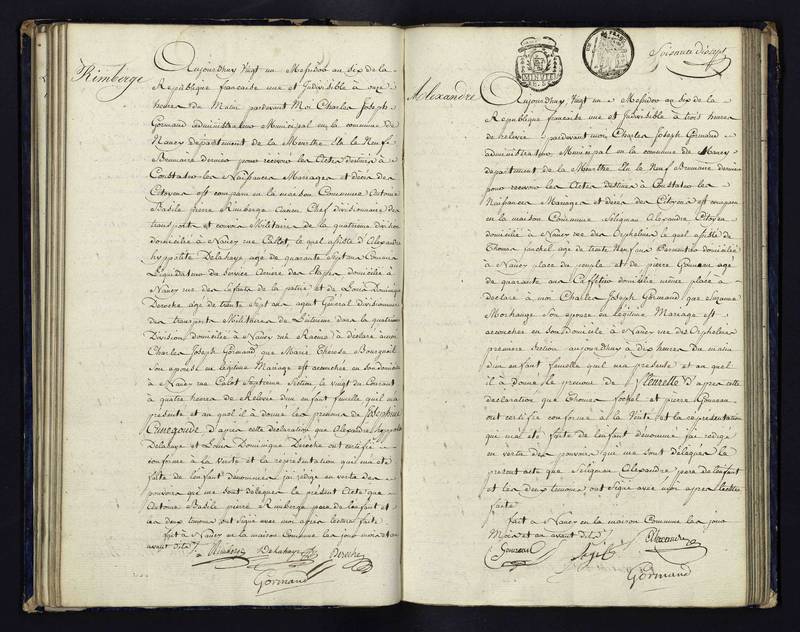 Rimberge
Aujourdhuy Vingt un Messidor an six de la
République française une et Indivisible à onze
heures du Matin pardevant Moi Charles Joseph
Gormand administrateur Municipal en la commune de
Nancy département de la Meurthe Elu le Neuf
Brumaire dernier pour recevoir les Actes destinés à
Constater les Naissances Mariages et décès des
Citoyens est comparu en la maison Commune Antoine
Basile pierre Rimberge ancien Chef divisionnaire des
transports et convois Militaires de la quatrieme division
domicilié à Nancy rue Callot, le quel assisté d'Alexandre
hyppolite Delahaye agé de quarante sept ans
Liquidateur du Service des Etapes domicilié à
Nancy rue des Enfants de la patrie et de Louis Dominique
Deroche agé de trente sept ans agent Général divisionnaire
des transports Militaires de dans la quatrieme
Division domicilié à Nancy rue Racine à déclaré à moi
Charles Joseph Gormand que Marie Thérèse Bourgeois
Son epouse en légitime Mariage est accouchée en son domicile
à Nancy rue Calot Septieme Section le vingt du Courant
à quatre heures de Relevée d'un enfant femelle quel m'a
présenté et au quel il à donné les prénoms de Josephine
Cunegonde D'apres cette déclaration que Alexandre hyppolite
Delahaye et Louis Dominique Deroche ont certifié
conforme à la Vérité et la réprésentation qui m'a été
faite de l'enfant dénommée j'ai rédigé en vertu des
pouvoirs qui me sont délégués le présent Acte que
Antoine Basile pierre Rimberge pere de l'enfant et
les deux temoins ont signé avec moi apres lecture faite
fait à Nancy en la maison Commune les jour mois et an
avant dits
Rimberge Delahaye Deroche
Gormand
MINUTE
Soixante dixsept
Alexandre
Aujourdhuy Vingt un Messidor an six de la
République française une et Indivisible à trois heures
de relevée pardevant moi Charles Joseph Gormand
administrateur Municipal en la commune de Nancy
département de la Meurthe Elu le Neuf Brumaire dernier
pour recevoir les Actes destinés à Constater les
Naissances Mariages et décès des Citoyens est comparu
en la maison Commune Seligman Alexandre Citoyen
domicilié à Nancy rue des Orphelines le quel assisté de
Thomas jouchel agé de trente Neuf ans domicilié
à Nancy place du peuple et de pierre Gouneau agé
de quarante ans Caffetier domicilié même place à
déclaré à moi Charles Joseph Gormand que Suzanne
Morhange Son epouse en légitime Mariage est
accouchée en Son domicile à Nancy rue des Orphelines
premiere Section aujourdhuy à dix heures du matin
d'un enfant femelle quel m'a présenté et au quel
il à donné le prénom de Fleurette D'apres cette
déclaration que Thomas jouchel et pierre Gouneau
ont certifié conforme à la Vérité et la réprésentation
qui m'a été faite de l'enfant dénommé j'ai rédigé
en vertu des pouvoirs qui me sont délégués le
présent acte que Seligman Alexandre pere de l'enfant
et les deux temoins ont signé avec moi apres lecture
faite
fait à Nancy en la maison Commune les jour
Mois et an avant dits
Alexandre
Gormand